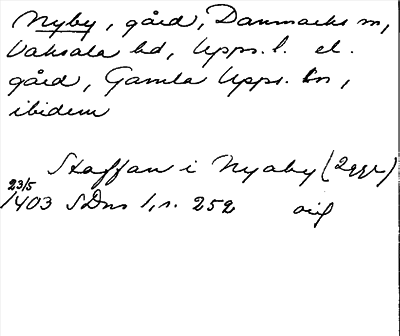 Nyby, gård, Danmarks sn,
Vaksala hd, Upps. l. el.
gård, Gamla Upps. sn,
ibidem
Staffan i Nyaby (2ggr)
23/5
1403 SDns 1, s. 252 orig